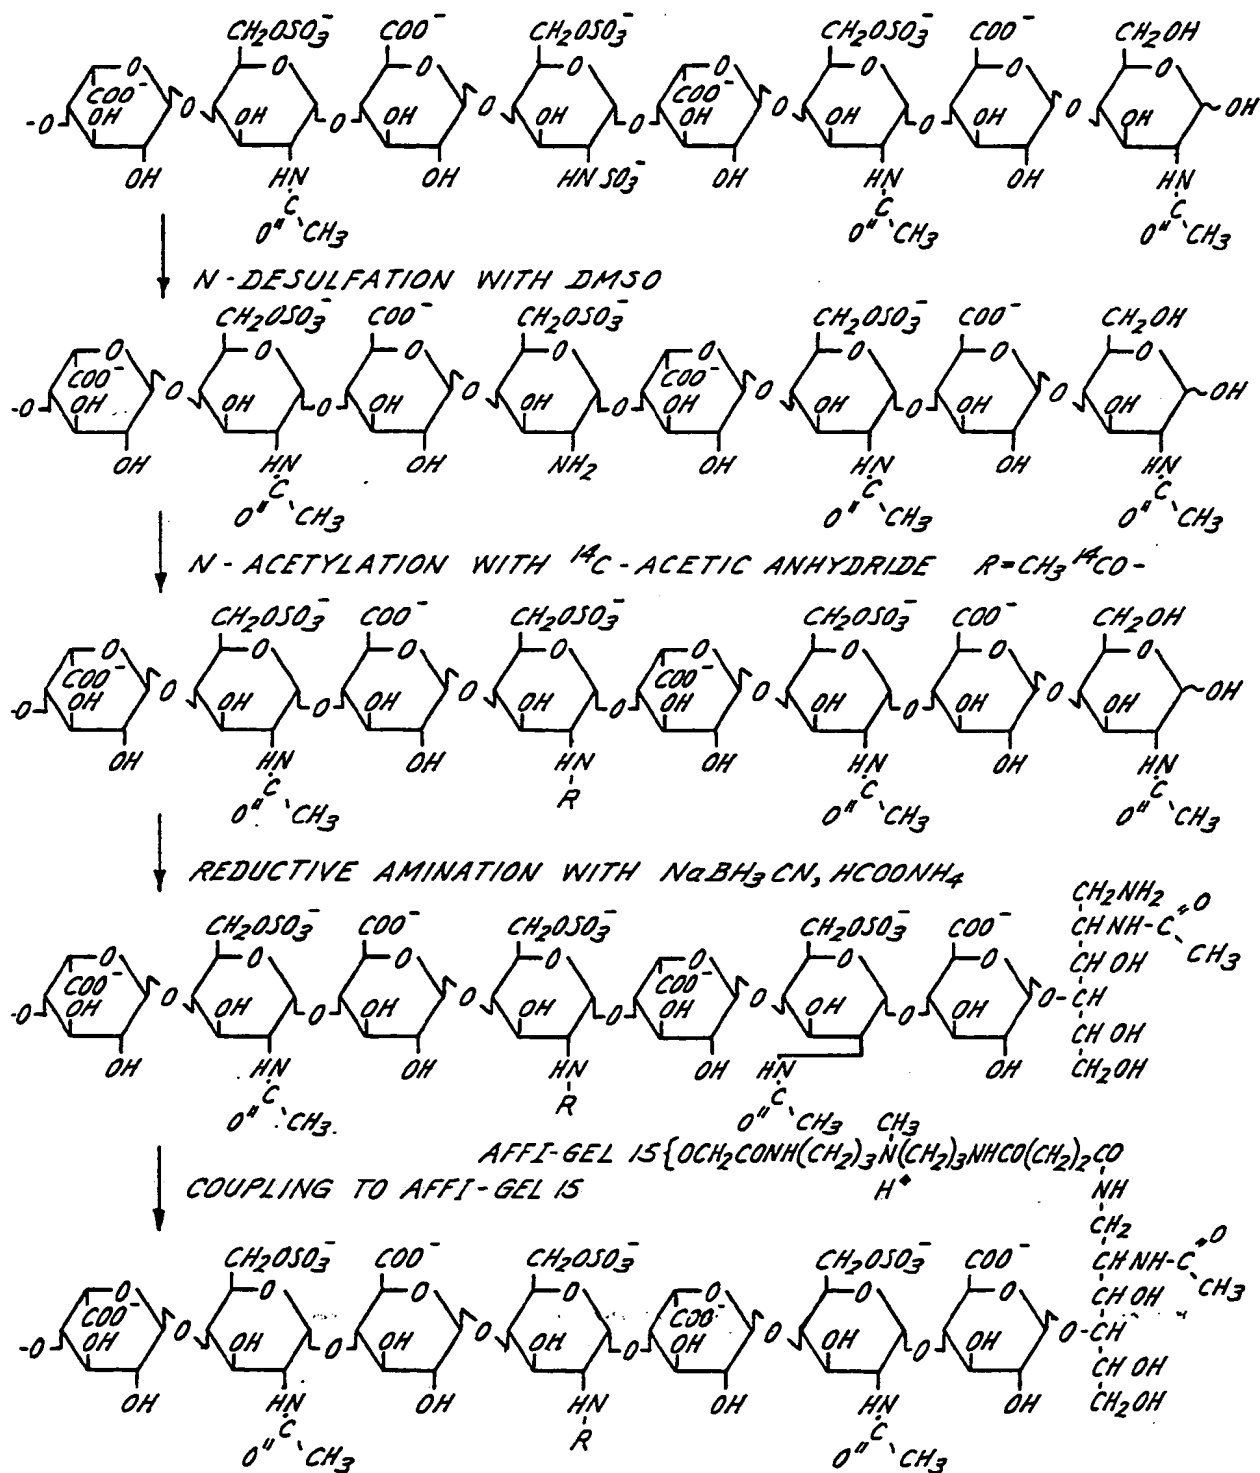 CH2OSO3⁻ COO⁻ CH2OSO3⁻ CH2OSO3⁻ COO⁻ CH2OH
O O O O O O O O
COO⁻ COO⁻
-O OH O OH O OH O OH O OH O OH O OH O OH OH
OH HN OH HNSO3⁻ OH HN OH HN
C C C
O" CH3 O" CH3 O" CH3
N-DESULFATION WITH DMSO
CH2OSO3⁻ COO⁻ CH2OSO3⁻ CH2OSO3⁻ COO⁻ CH2OH
O O O O O O O O
COO⁻ COO⁻
-O OH O OH O OH O OH O OH O OH O OH O OH OH
OH HN OH NH2 OH HN OH HN
C C C
O" CH3 O" CH3 O" CH3
N-ACETYLATION WITH ¹⁴C-ACETIC ANHYDRIDE R=CH3¹⁴CO-
CH2OSO3⁻ COO⁻ CH2OSO3⁻ CH2OSO3⁻ COO⁻ CH2OH
O O O O O O O O
COO⁻ COO⁻
-O OH O OH O OH O OH O OH O OH O OH O OH OH
OH HN OH HN OH HN OH HN
C R C C
O" CH3 O" CH3 O" CH3
REDUCTIVE AMINATION WITH NaBH3CN, HCOONH4
CH2NH2
CH2OSO3⁻ COO⁻ CH2OSO3⁻ CH2OSO3⁻ COO⁻ CHNH-C O
O O O O O O O CHOH CH3
COO⁻ COO⁻
-O OH O OH O OH O OH O OH O OH O OH O-CH
CHOH
OH HN OH HN OH HN OH CH2OH
C R C
O" CH3 O" CH3
CH3
AFFI-GEL 15{OCH2CONH(CH2)3N(CH2)3NHCO(CH2)2CO
COUPLING TO AFFI-GEL 15 H⁺ NH
CH2
CH2OSO3⁻ COO⁻ CH2OSO3⁻ CH2OSO3⁻ COO⁻ CHNH-C O
O O O O O O O CHOH CH3
COO⁻ COO⁻
-O OH O OH O OH O OH O OH O OH O OH O-CH
CHOH
OH HN OH HN OH HN OH CH2OH
C R C
O" CH3 O" CH3